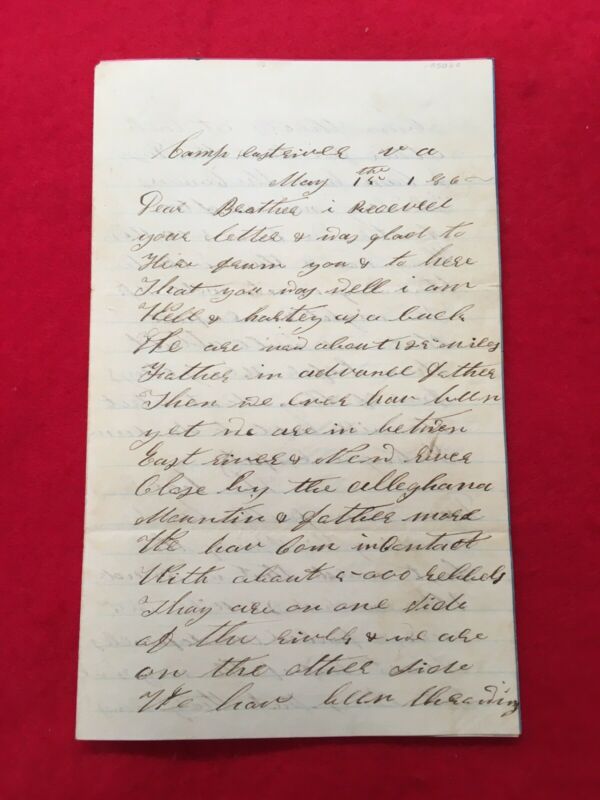 Camp East river va
May the 1862
Dear Brother i Received
your letter & was glad to
Hire frum you & to here
That you was well i am
Well & hartey as a buck
We are now about 125 miles
Father in advance father
Then we ever hav bin
yet we are in between
East river & New river
Close by the alleghana
Mountin & father more
We hav Com in Contact
With about 5000 rebbels
Thay are on one side
of the river & we are
on the other side
We hav been